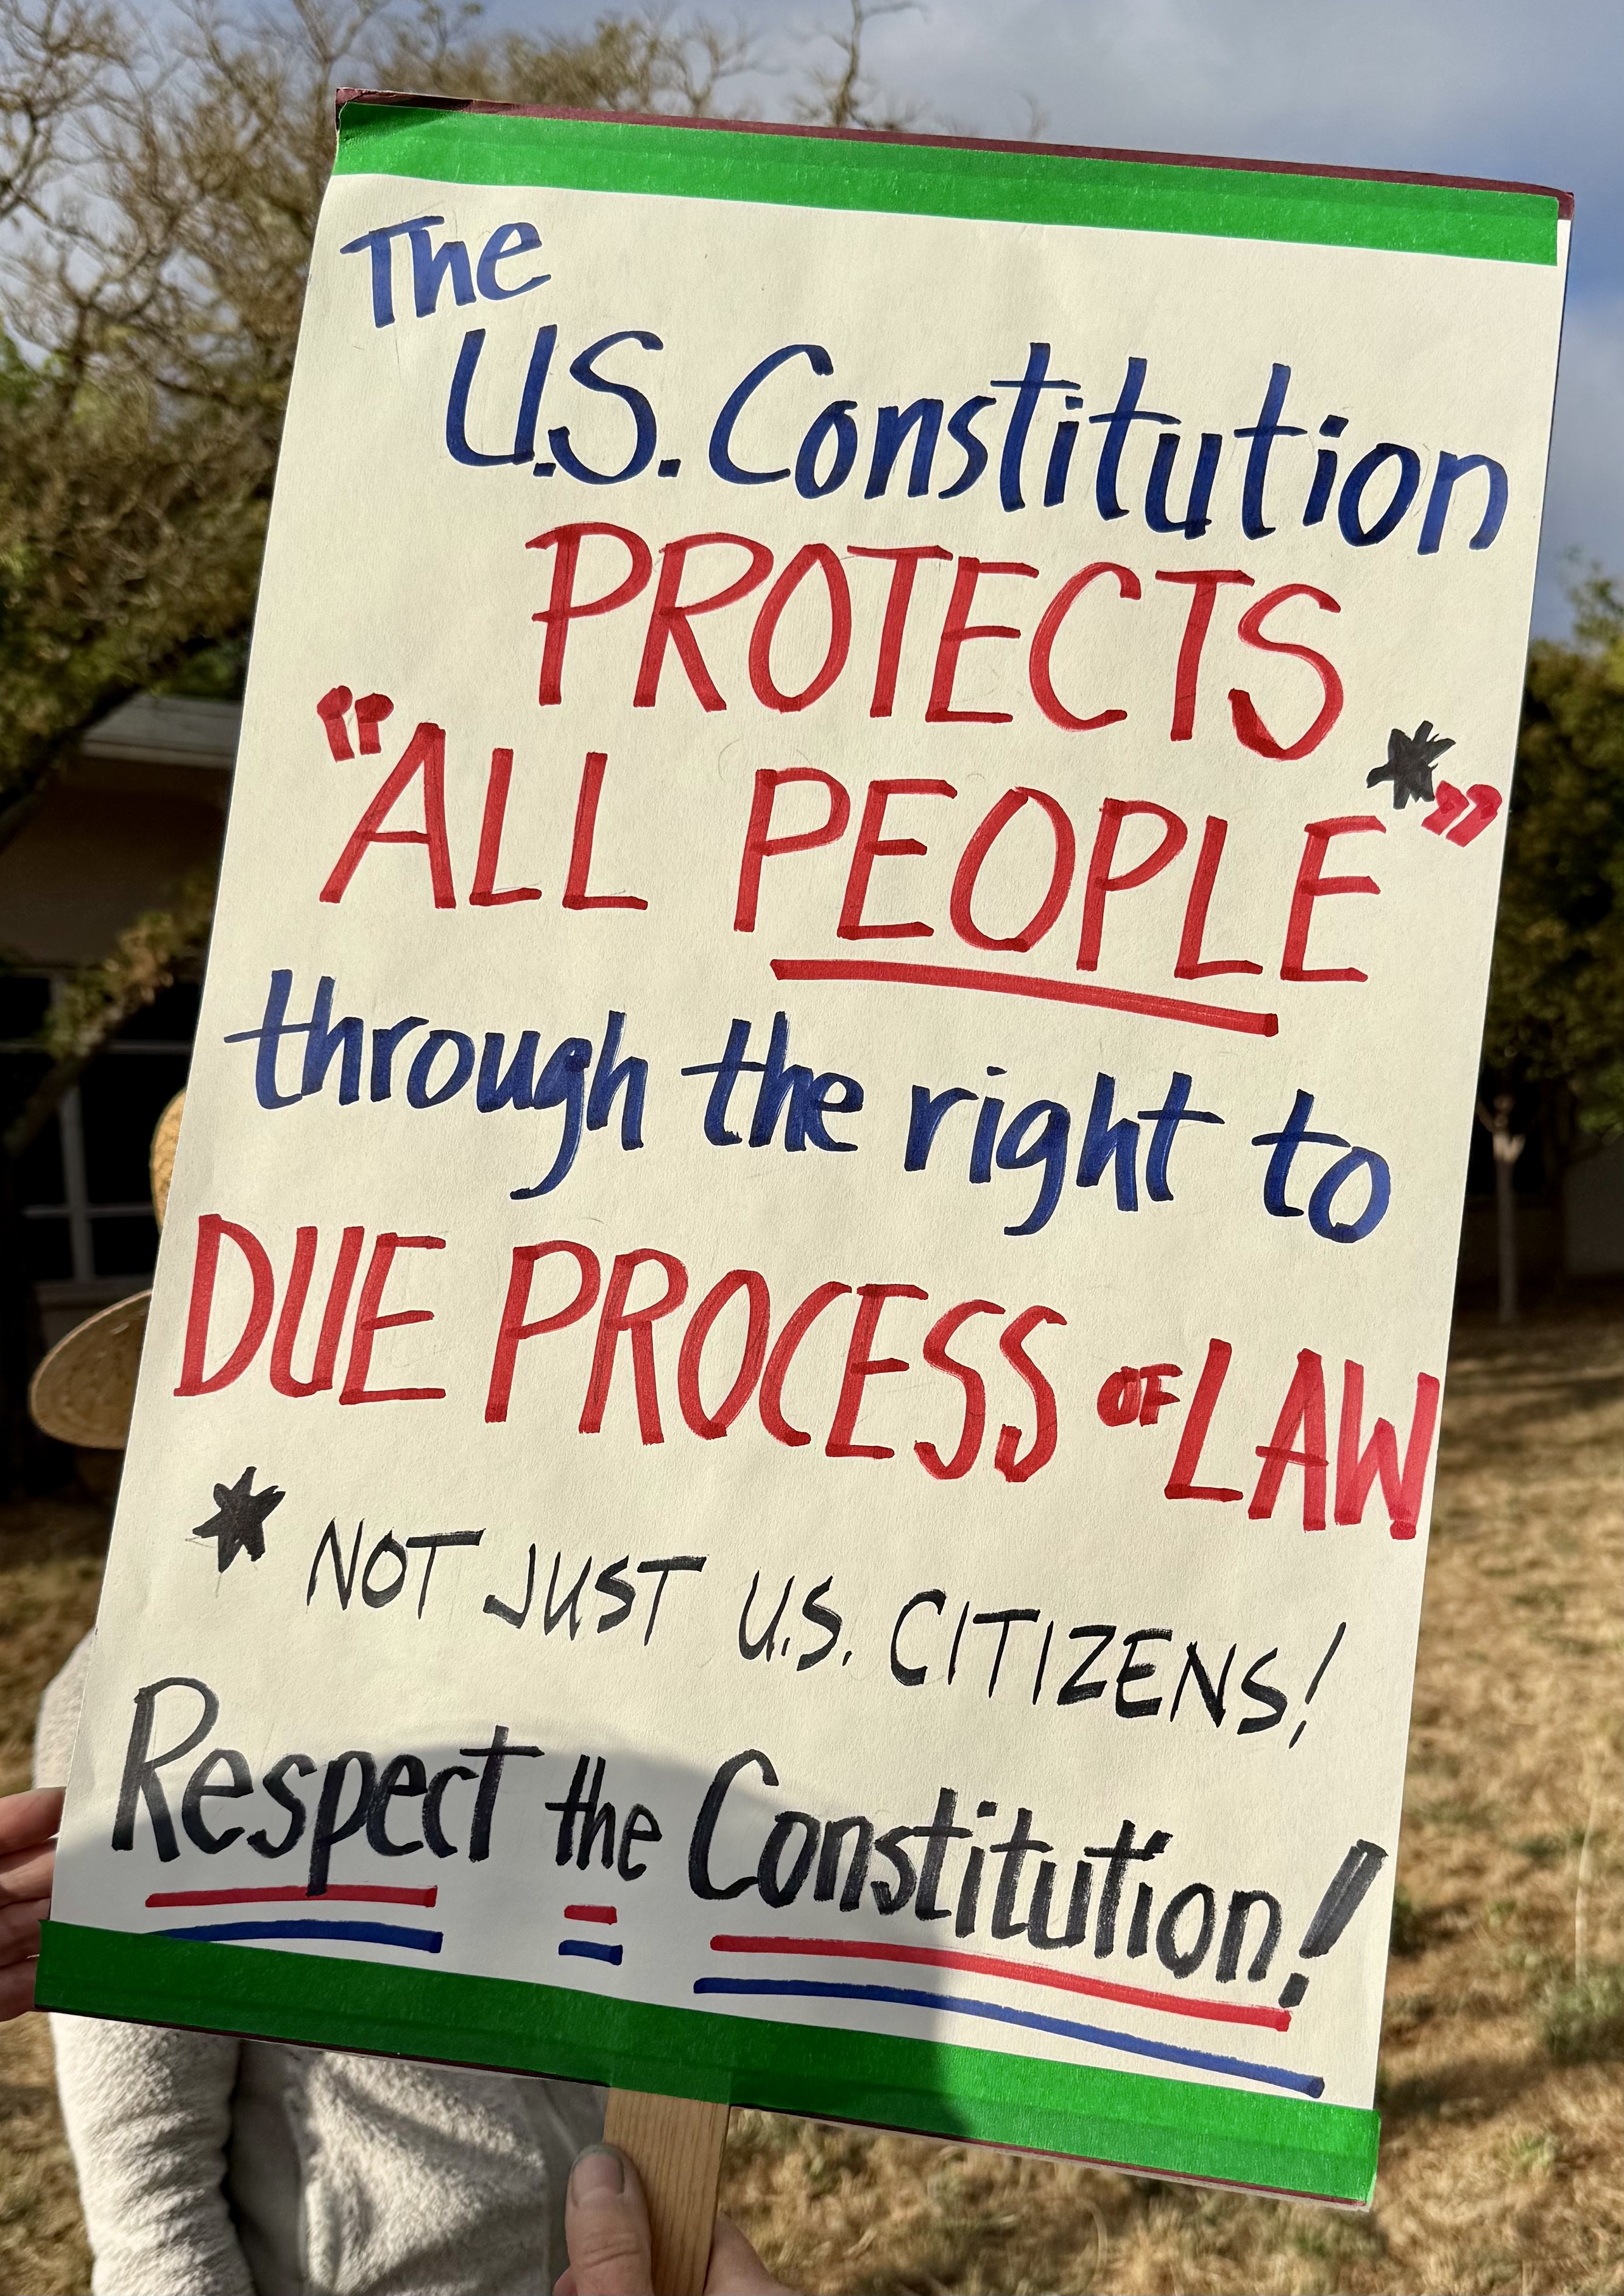 The
U.S. Constitution
PROTECTS
"ALL PEOPLE*"
through the right to
DUE PROCESS OF LAW
* NOT JUST U.S. CITIZENS!
Respect the Constitution!